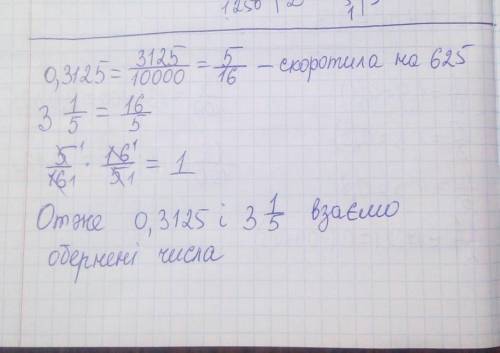 1250 | 2
0,3125 = 3125/10000 = 5/16 – скоротила на 625
3 1/5 = 16/5
5/16 · 16/5 = 1
Отже 0,3125 і 3 1/5 взаємо
обернені числа